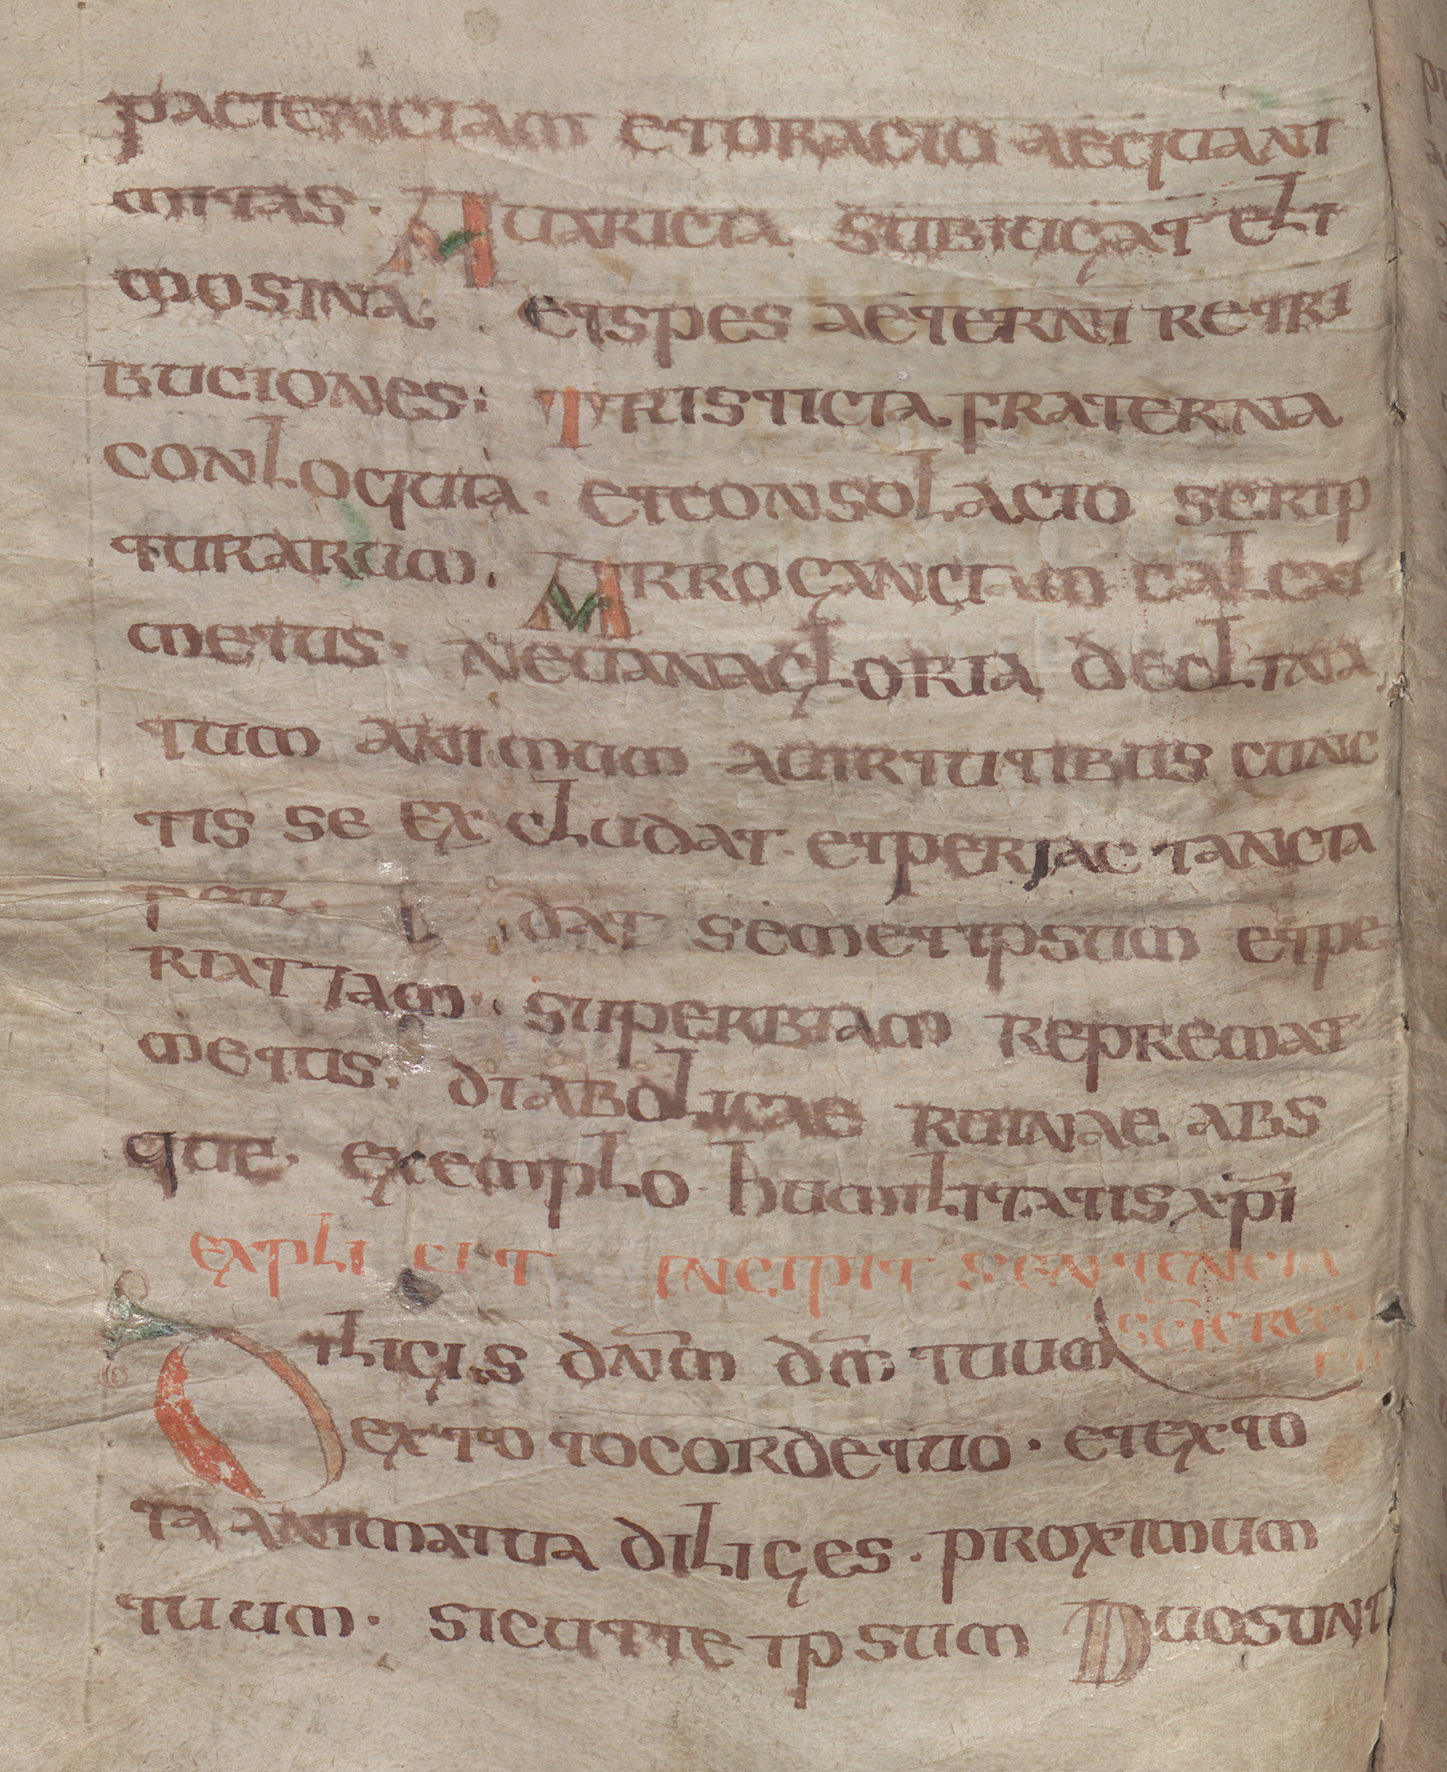 paciencciam et oracio aequani
mitas · Auaricia subiugat eli
mosina; et spes aeterni retri
buciones; Tristicia fraterna
conloquia · et consolacio scrip
turarum. Arroganciam calcat
metus · ne uana gloria declina
tum animum a uirtutibus cunc
tis se excludat · et per jactancia
per dat semetipsum et pe
riat jam · superbiam repremat
metus · diabolicae ruinae abs
que exemplo humilitatis xp̄i
expli cit incipit sentencia
sc̄i
iligis dn̄m dm̄ tuum
D ex toto corde tuo · et ex to
ta anima tua diliges · proximum
tuum · sicut te ipsum Duo sunt